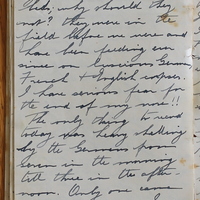 why should they
not? they were in the
field before we were and
have been feeding ever
since on Gracious German,
French & English corpses.
I have serious fear for
the end of my nose!!
The only thing to record
today was heavy shelling
by the Germans from
seven in the morning
till three in the after-
noon. Only one came